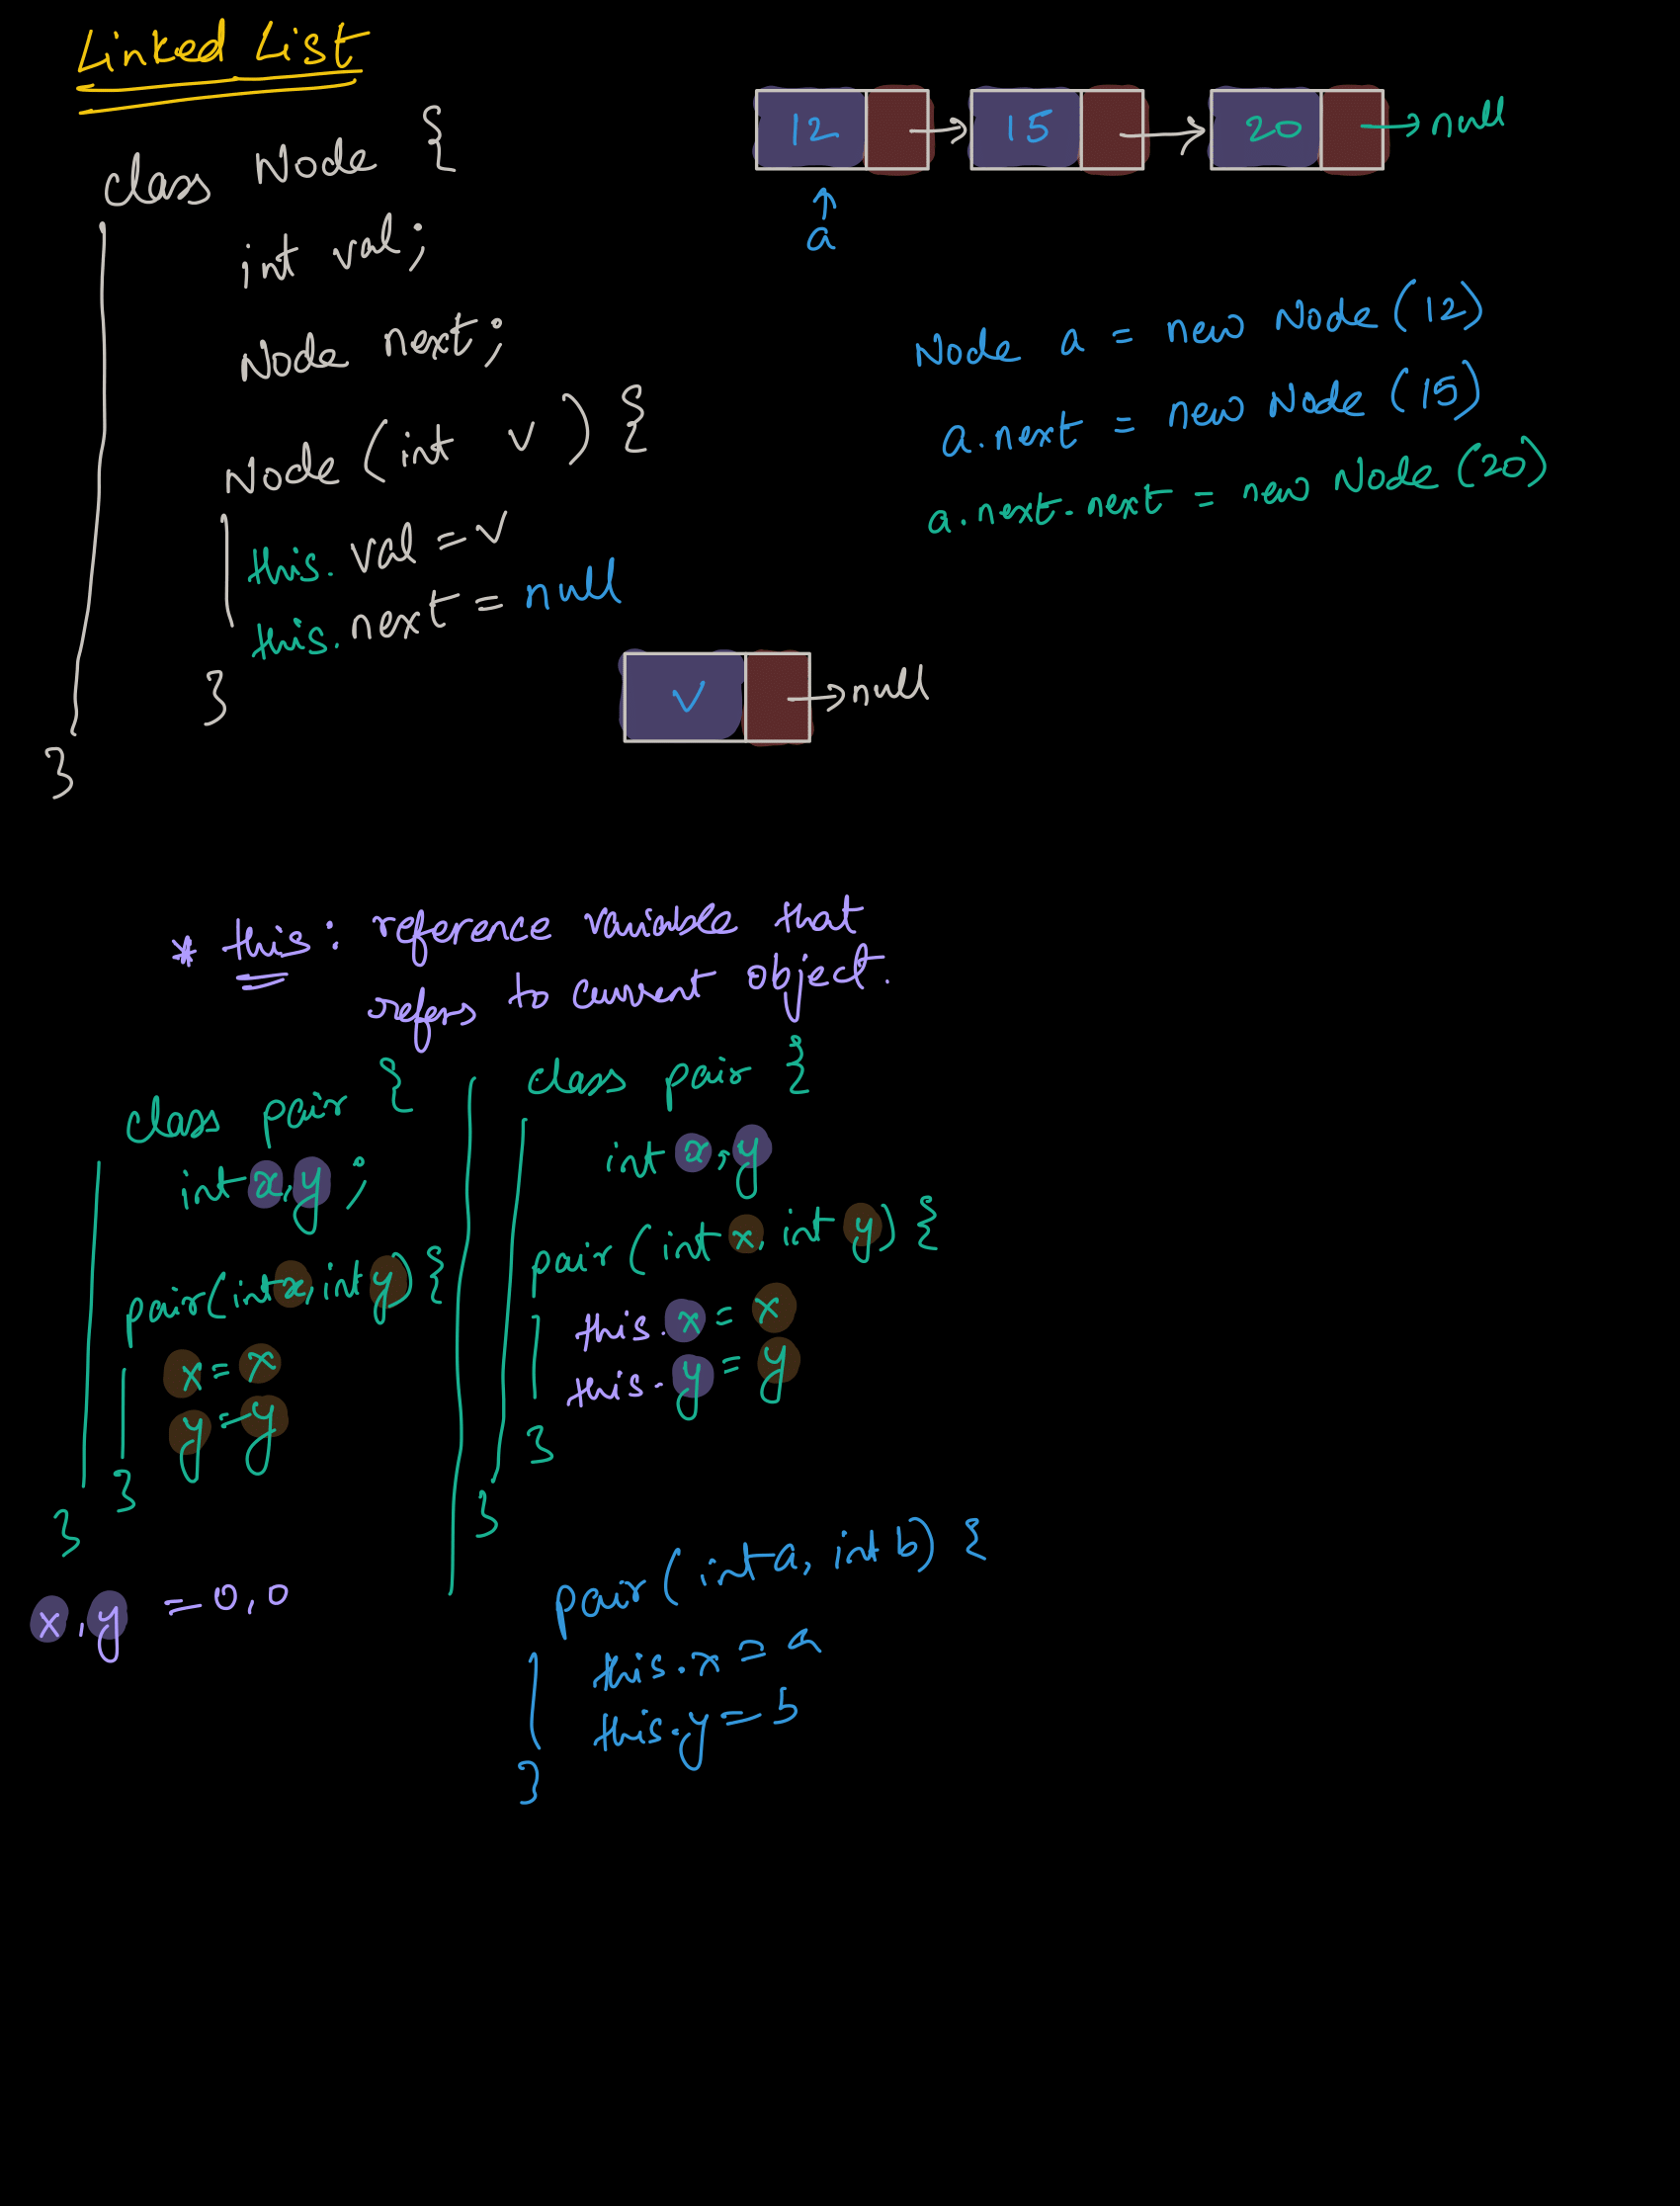 Linked List
class Node {
int val;
Node next;
Node (int v) {
this. val = v
this. next = null
}
}
12
15
20
null
a
Node a = new Node (12)
a.next = new Node (15)
a.next.next = new Node (20)
v
null
* this : reference variable that
refers to current object.
class pair {
int x, y ;
pair(int x, int y) {
x = x
y = y
}
}
x, y = 0, 0
class pair {
int x, y
pair (int x, int y) {
this. x = x
this. y = y
}
}
pair (int a, int b) {
this.x = a
this.y = b
}